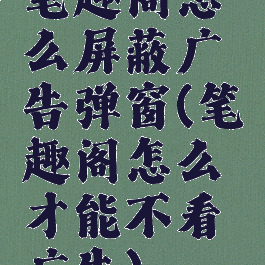 笔趣阁怎
么屏蔽广
告弹窗(笔
趣阁怎么
才能不看
广告)